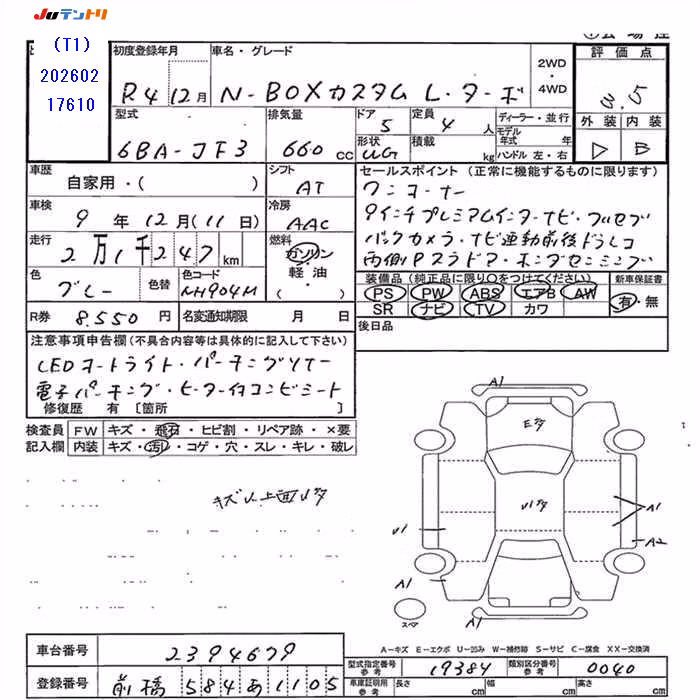 JUテントリ
(T1)
202602
17610
初度登録年月
車名・グレード
2WD
・
4WD
評価点
3.5
R4 12月
N-BOXカスタム L・ターボ
型式
排気量
ドア
5
定員
4 人
ディーラー・並行
モデル
年式 年
ハンドル 左・右
外装 内装
6BA-JF3
660 CC
形状
積載
kg
B
車歴
自家用・( )
シフト
AT
セールスポイント (正常に機能するものに限ります)
ワンオーナー
9インチプレミアムインターナビ・フルセグ
バックカメラ・ナビ連動前後ドラレコ
両側Pスラドア・ホンダセンシング
車検
9 年 12月(11日)
冷房
AAC
走行
2万1千247 km
燃料
ガソリン
軽油
・( )
色
グレー
色替
色コード
NH904M
装備品 (純正品に限り○をつけてください)
新車保証書
PS PW ABS エアB AW
SR ナビ TV カワ
有・無
R券
8.550 円
名変通知期限
月 日
後日品
注意事項申告欄 (不具合内容等は具体的に記入して下さい)
LEDオートライト・パーキングソナー
電子パーキング・ヒーター付コンビシート
修復歴 有 〔箇所 〕
検査員
記入欄
FW
キズ・飛石・ヒビ割・リペア跡・×要
内装
キズ・汚れ・コゲ・穴・スレ・キレ・破レ
A1
Eタ
Uタ
A1
A2
U1
A1
A1
スペア
A-キズ E-エクボ U-凹み W-補修跡 S-サビ C-腐食 XX-交換済
車台番号
2394679
登録番号
前橋 584あ1105
型式指定番号
参考
19384
類別区分番号
参考
0040
車庫証明用
参考
長さ
cm
幅
cm
高さ
cm